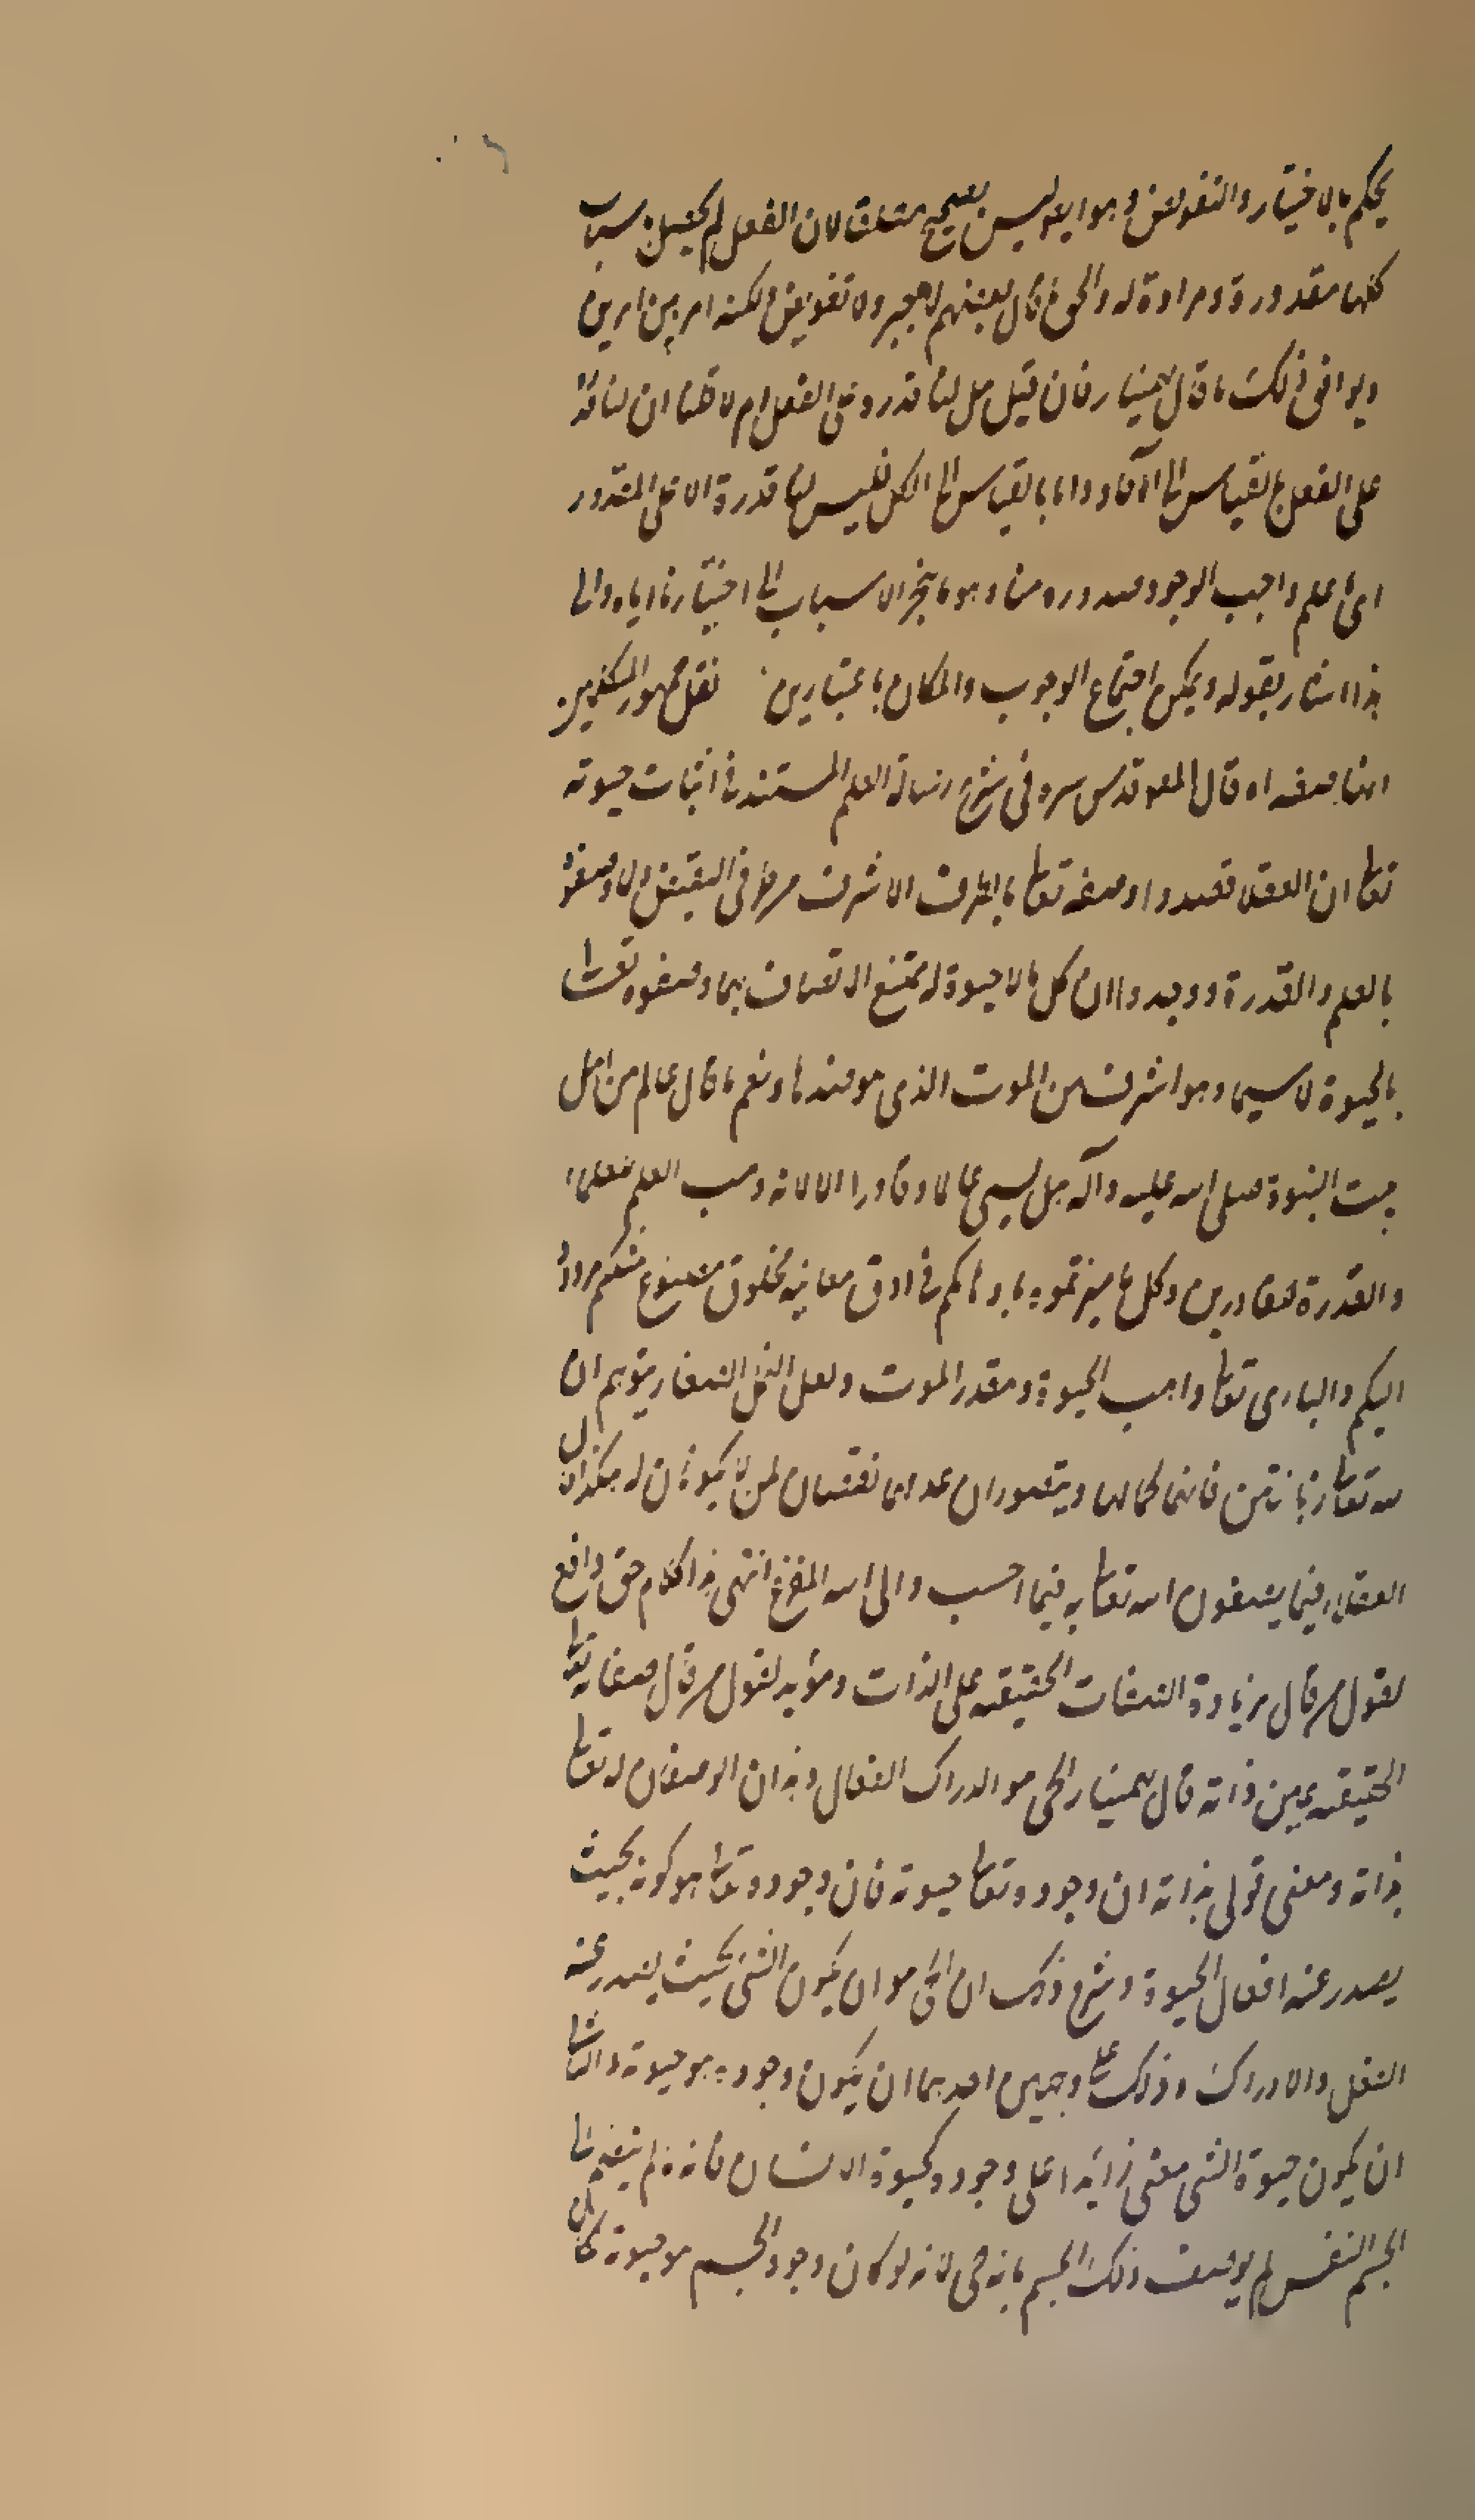 يحكم بالاختيار والتفويض وهو ايضا ليس بصحيح مطلقا لان الفعل لم يحصل باسباب
كلها مقدورة ومرادة له والحق ما قال بعضهم لا جبر ولا تفويض ولكنه امر بين امرين
ويوافق ذلك ما قال بهمنيار فان قيل هل لنا قدرة على الفعل ام لا قلنا ان لنا قدرة
على الفعل بالقياس الى الآحاد واما بالقياس الى الكل فليس لنا قدرة الا على المقدور
اى ما علم واجب الوجود صدوره منا وهو ما ينجر الاسباب الى اختيارنا اياه والى
هذا اشار بقوله ويمكن اجتماع الوجوب والامكان باعتبارين نقل جمهور المتكلمين
انها صفة اه قال المص قدس سره فى شرح رسالة العلم المستند فى اثبات حيوته
تعالى ان العقلاء قصدوا وصفه تعالى بالطرف الاشرف من طرفى النقيض ولما وصفوه
بالعلم والقدرة ووجدوا ان كل ما لا حيوة له ممتنع الاتصاف بهما وصفوه تعالى
بالحيوة لا سيما وهو اشرف من الموت الذى هو ضدها ونعم ما قال عالم من اهل
بيت النبوة صلى الله عليه وآله هل يسمى عالما وقادرا الا لانه وهب العلم للعلماء
والقدرة للقادرين وكل ما ميزتموه باوهامكم فى ادق معانيه مخلوق مصنوع مثلكم مردود
اليكم والبارى تعالى واهب الحيوة ومقدر الموت ولعل النمل الصغار يتوهم ان
لله تعالى زبانيتين فانهما كمالها ويتصور ان عدمهما نقصان لمن لا يكونان له هكذا حال
العقلاء فيما يصفون الله تعالى به فيما احسب والى الله المفزع انتهى هذا كلام حق دافع
لقول من قال بزيادة الصفات الحقيقية على الذات ومؤيد لقول من قال صفاته تعالى
الحقيقية عين ذاته قال بهمنيار الحى هو الدراك الفعال وهذان الوصفان له تعالى
بذاته ومعنى قولى بذاته ان وجوده تعالى حيوته فان وجوده تعالى هو كونه بحيث
يصدر عنه افعال الحيوة وشرح ذلك ان الحى هو ان يكون الشئ بحيث يصدر عنه
الفعل والادراك وذلك على وجهين احدهما ان يكون وجوده هو حيوته والثانى
ان يكون حيوة الشى معنى زائدا على وجوده كحيوة الانسان فانه ما لم ينضم الى
الجسم النفس لم يوصف ذلك الجسم بانه حى لانه لو كان وجود الجسم هو حيوته لكان